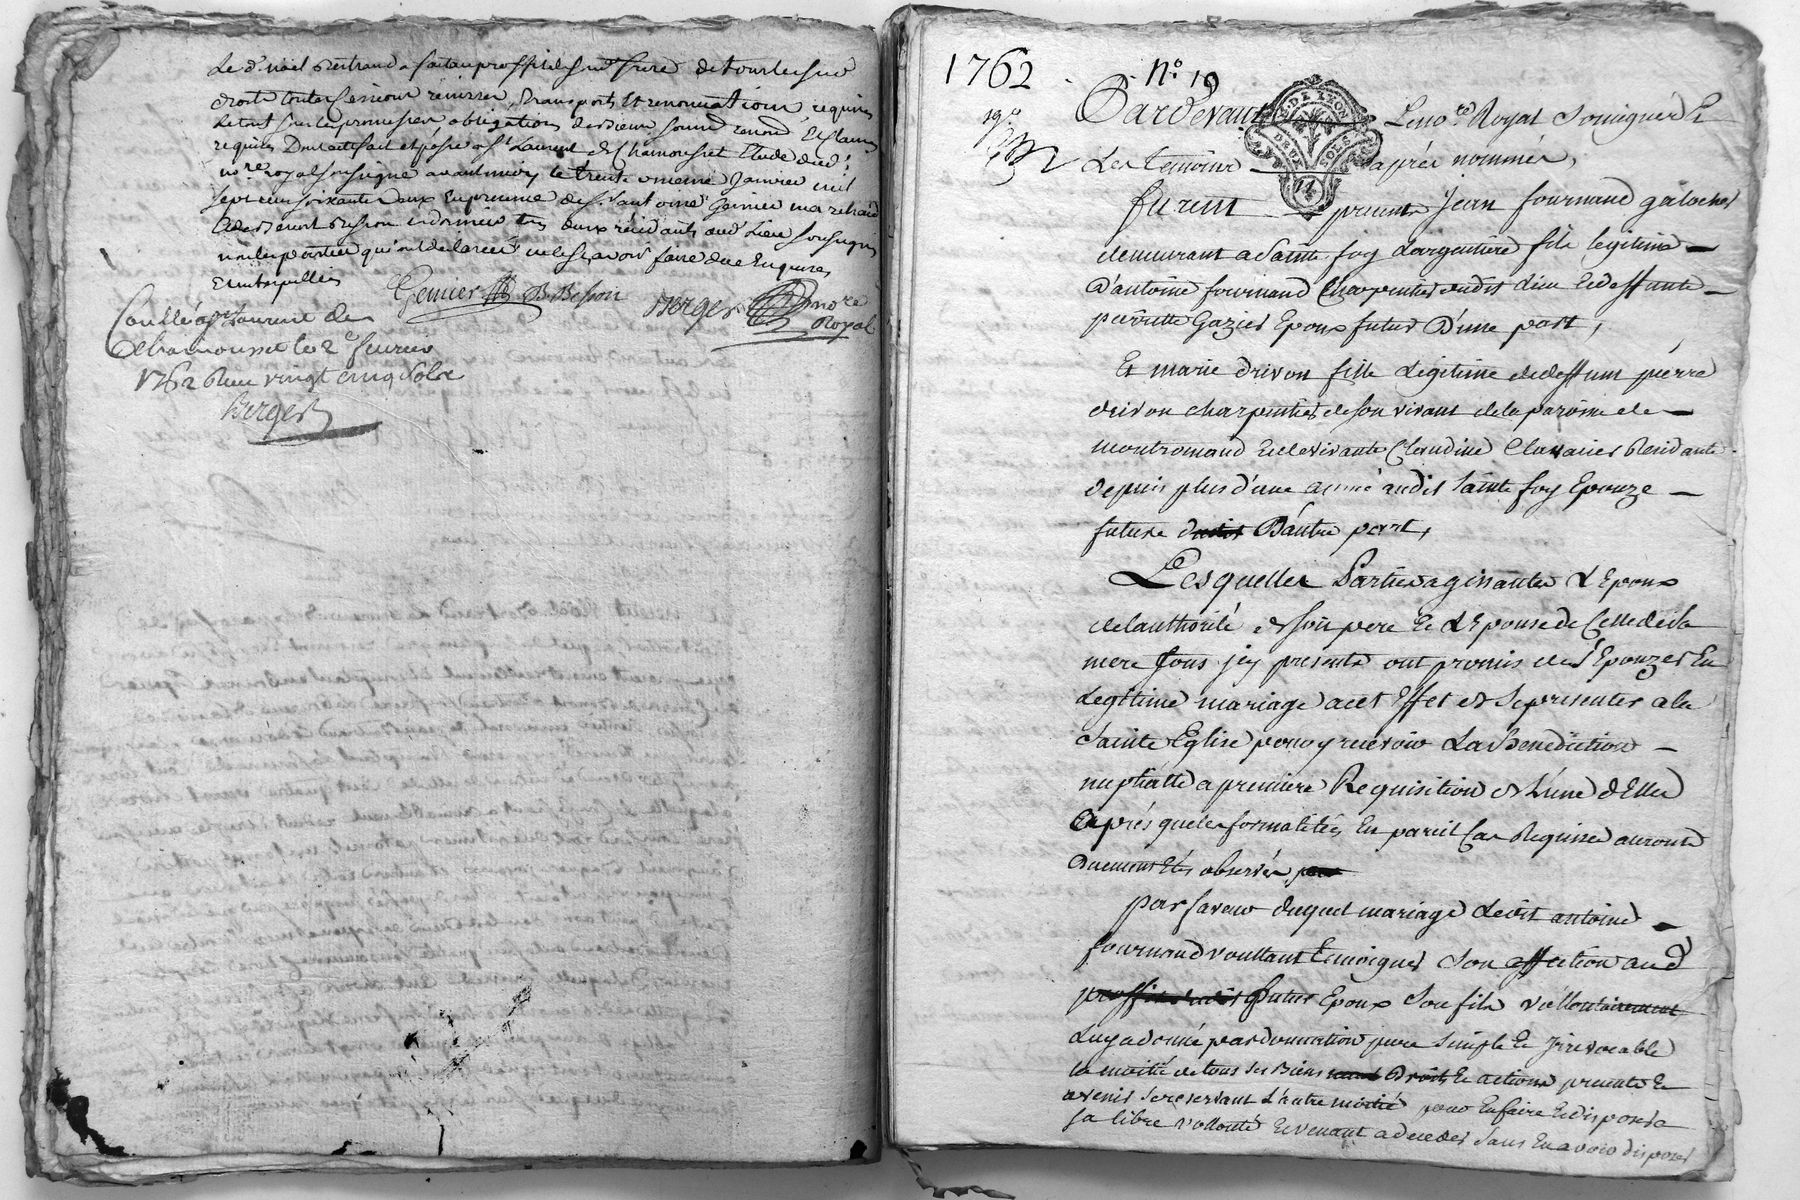 Le dt. noël bertrand a fait au proffit de
droits toutes remises, transports et renonciations requises
le tout sous les promesses obligations renond. et Clauses
requises Dont acte fait et passé a St. Laurent de Chamousset Etude dud.
nore. royal soussigné avant midy le trente unieme Janvier mil
sept cens soixante deux En presence de sr. antoine Genier marchand
& de benoit Besson tous deux résidants aud. Lieu soussignés
non les parties qui ont declarées ne le sçavoir faire de ce Enquises
Et interpellées
Genier B Besson Berger nore Royal
Conllé a St Laurent de
Chamousset le 2e fevrier
1762 Reçu vingt cinq sols
Berger
1762 No. 19
Pardevant Le nore. Royal Soussigné Et
G. DE LEON
DEUX SOLS
Les temoins après nommés,
furent presents Jean fournand galocher
demeurant a Sainte foy Largentiere fils legitime
D'antoine fournand Charpentier dudit Lieu Et deffunte
pierrette Gazier Epoux futur D'une part,
Et marie drivon fille Légitime de deffunt piérre
drivon charpentier de son vivant de la paroisse de
montromand Et de vivante Claudine Clavaier Residante
depuis plus d'une année audit Sainte foy Epouze
future D'autre part,
Lesquelles Parties agissantes L'Epoux
de L'authorité de son pere Et L'Epouse de Celle de sa
mere Tous jcy presents ont promis de s'Epouzer En
Legitime mariage a cet Effet de se presenter a la
Sainte Eglise pour y recevoir La Benediction
nuptialle a premiere Requisition de L'une d'Elles
après que les formalités En pareil Cas Requises auront
Duement Etés observés
par faveur duquel mariage Ledit antoine
fournand voullant temoigner Son affection aud.
proffit dudit futur Epoux Son fils volontairement
Luy a donné par donnation pure Simple Et Jrrevocable
la moitié de tous ses Biens Droits Et actions presents Et
avenir Se reservant L'autre moitié pour En faire Et disposer a
sa libre vollonté Et venant a deceder Sans En avoir disposer